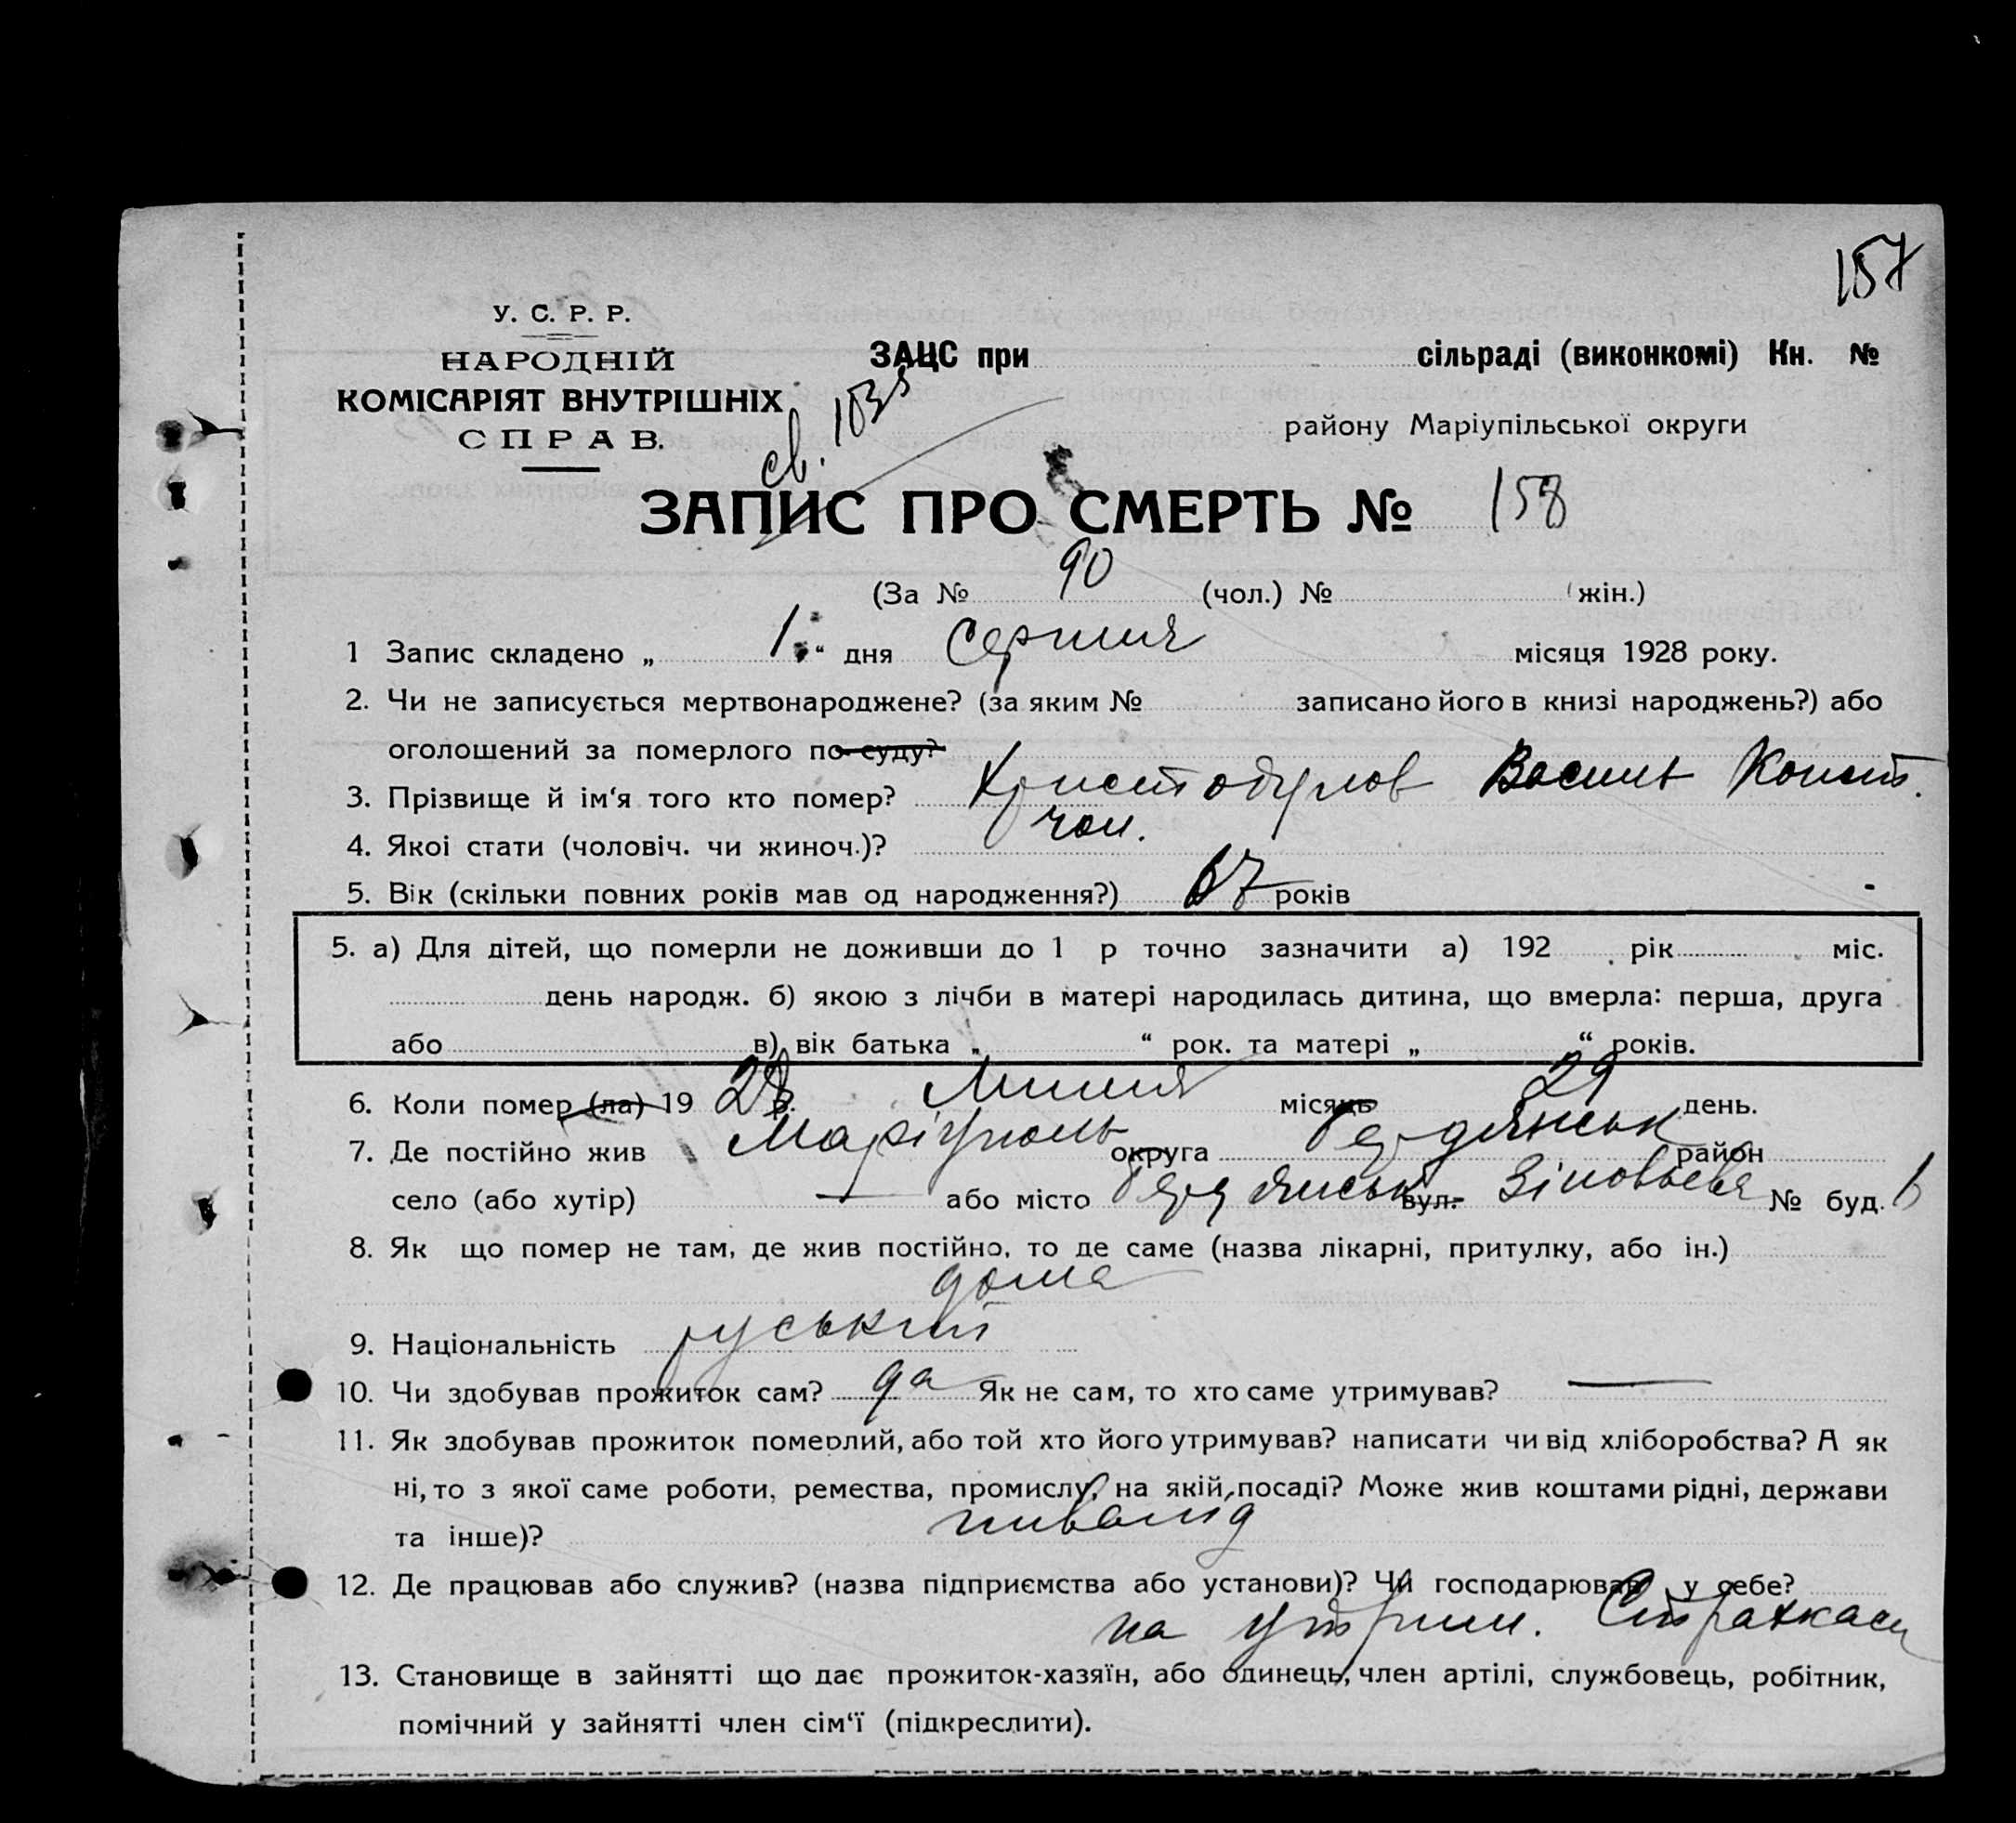 157
У. С. Р. Р.
НАРОДНІЙ
КОМІСАРІЯТ ВНУТРІШНІХ
СПРАВ.
ЗАЦС при сільраді (виконкомі) Кн. №
району Маріупільської округи
св. 1035
ЗАПИС ПРО СМЕРТЬ № 158
(За № 90 (чол.) № (жін.)
1 Запис складено „ 1 “ дня Серпня місяця 1928 року.
2. Чи не записується мертвонароджене? (за яким № записано його в книзі народжень?) або
оголошений за померлого по суду?
3. Прізвище й ім‘я того кто помер? Христодулов Василь Конст.
4. Якоі стати (чоловіч. чи жиноч.)? чол.
5. Вік (скільки повних років мав од народження?) 67 років
5. а) Для дітей, що померли не доживши до 1 р точно зазначити а) 192 рік міс.
день народж. б) якою з лічби в матері народилась дитина, що вмерла: перша, друга
або в) вік батька „ “ рок. та матері „ “ років.
6. Коли помер (ла) 19 28 р. Липня місяць 29 день.
7. Де постійно жив Маріуполь округа Бердянськ район
село (або хутір) — або місто Бердянськ вул. Зіновьева № буд. 6
8. Як що помер не там, де жив постійно, то де саме (назва лікарні, притулку, або ін.)
дома
9. Національність руський
10. Чи здобував прожиток сам? да Як не сам, то хто саме утримував? —
11. Як здобував прожиток померлий, або той хто його утримував? написати чи від хліборобства? А як
ні, то з якої саме роботи, ремества, промислу, на якій посаді? Може жив коштами рідні, держави
та інше)? инвалід
12. Де працював або служив? (назва підприємства або установи)? Чи господарював у себе?
на утрим. Страхкаси
13. Становище в зайнятті що дає прожиток-хазяїн, або одинець, член артілі, службовець, робітник,
помічний у зайнятті член сім‘ї (підкреслити).